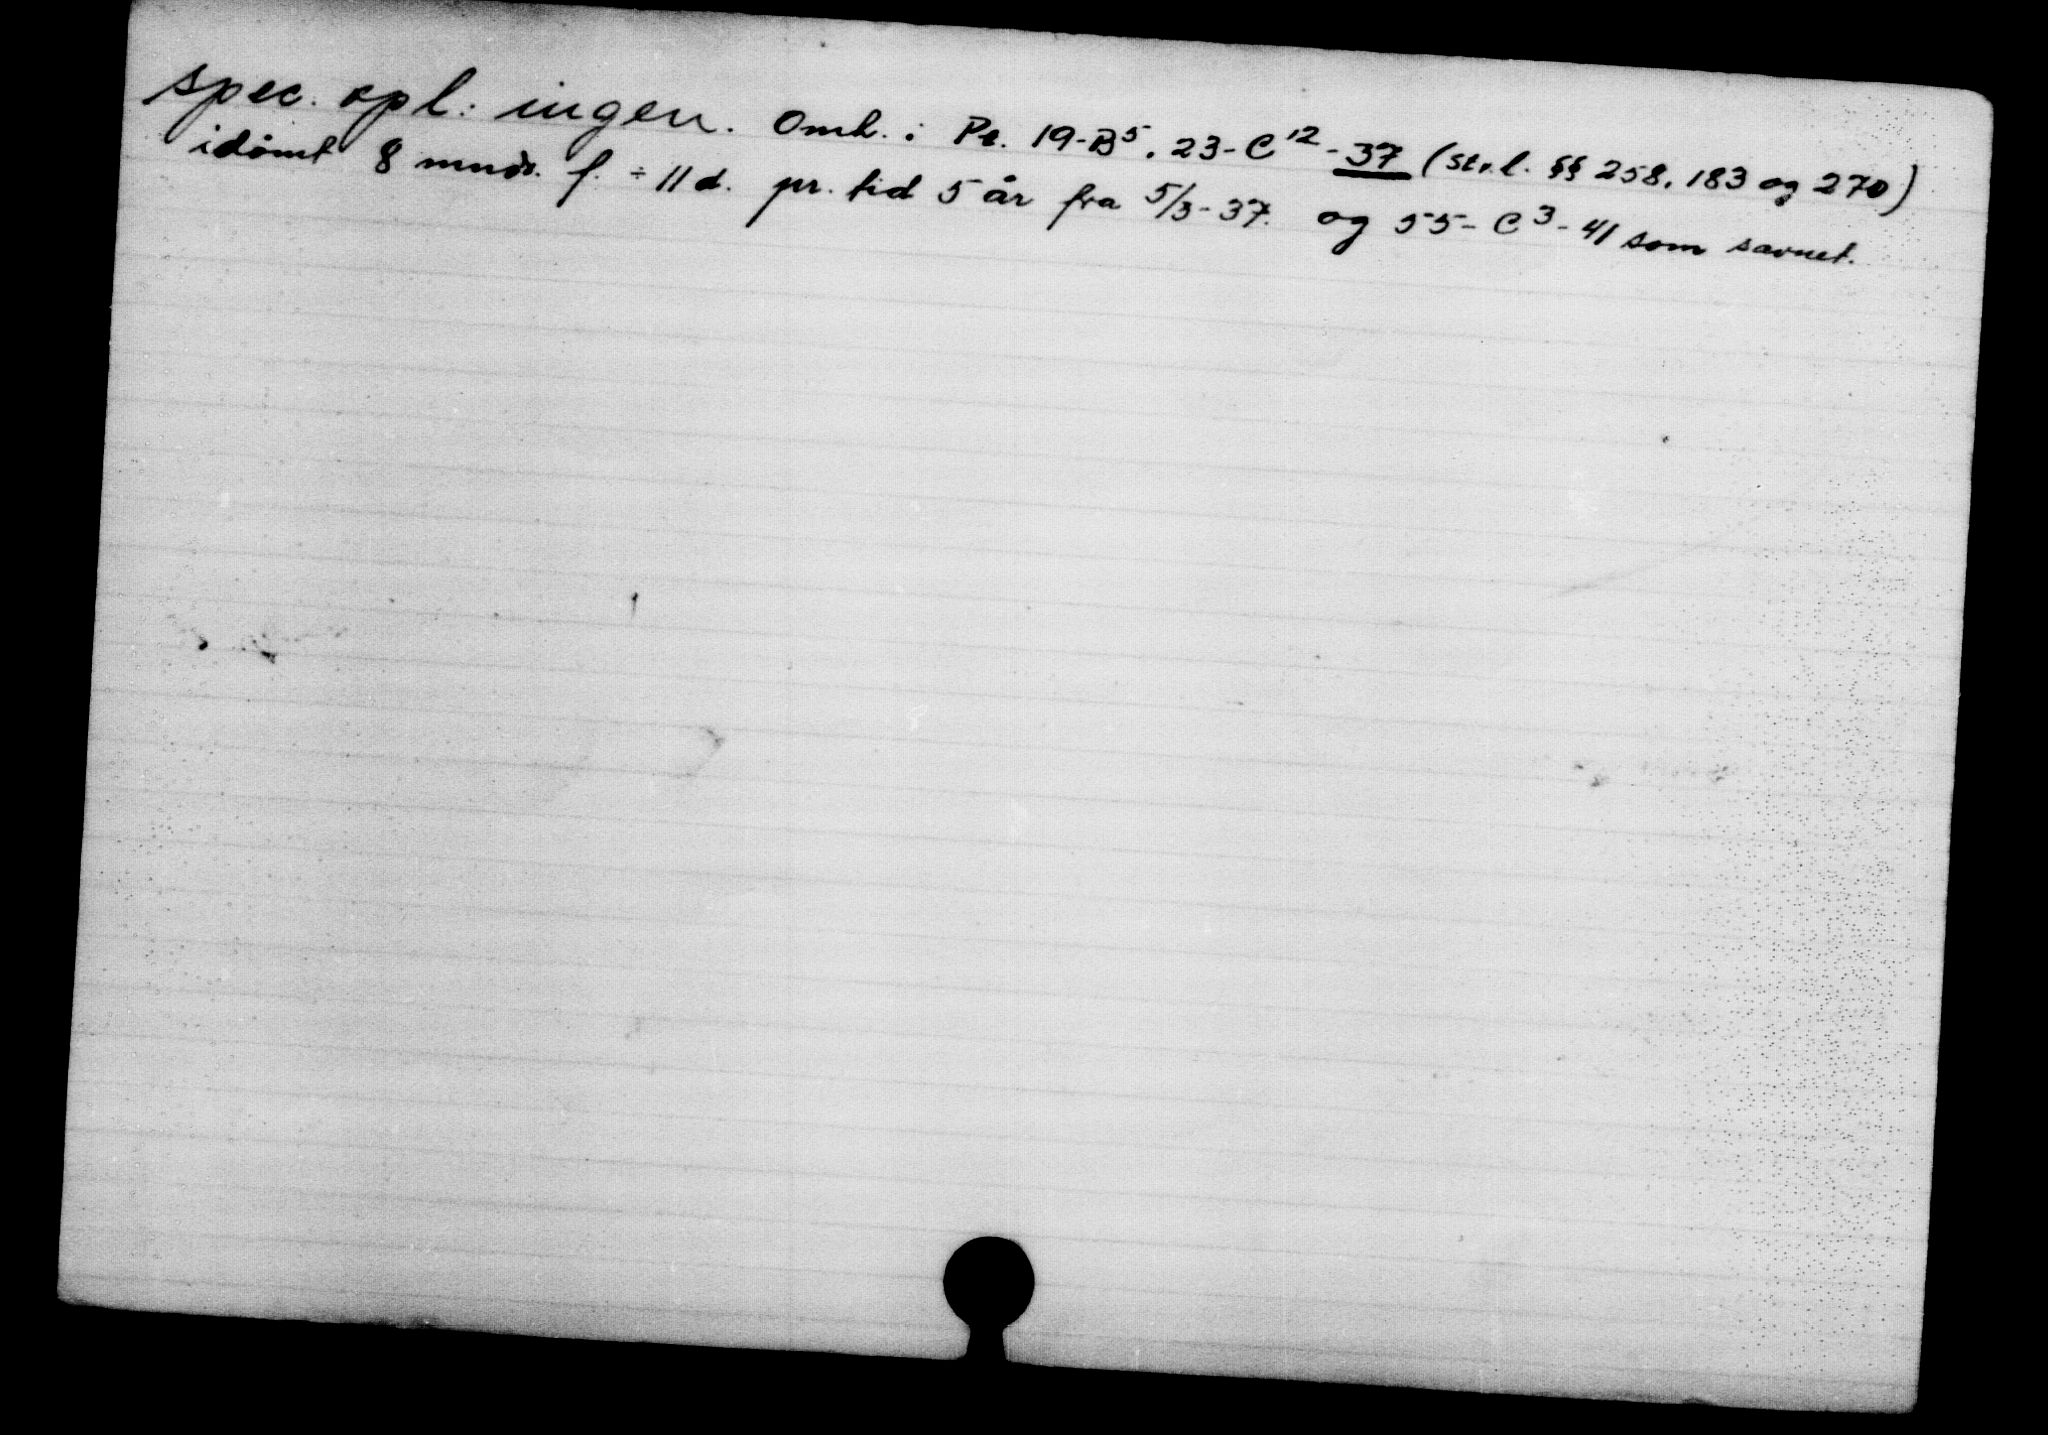 spec. opl: ingen. Omh. i Pe. 19-B⁵, 23-C¹²-37 (str.l. §§ 258, 183 og 270)
idømt 8 mndr. f. ÷ 11 d. pr. tid 5 år fra 5/3-37. og 55-C³-41 som savnet.